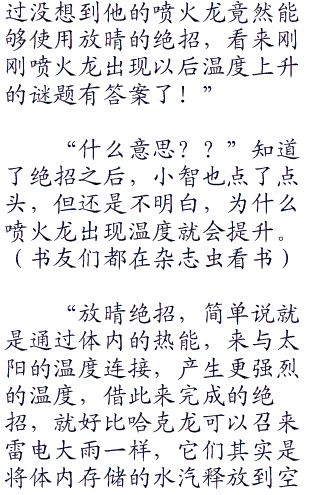 过没想到他的喷火龙竟然能
够使用放晴的绝招，看来刚
刚喷火龙出现以后温度上升
的谜题有答案了！”
“什么意思？？”知道
了绝招之后，小智也点了点
头，但还是不明白，为什么
喷火龙出现温度就会提升。
（书友们都在杂志虫看书）
“放晴绝招，简单说就
是通过体内的热能，来与太
阳的温度连接，产生更强烈
的温度，借此来完成的绝
招，就好比哈克龙可以召来
雷电大雨一样，它们其实是
将体内存储的水汽释放到空